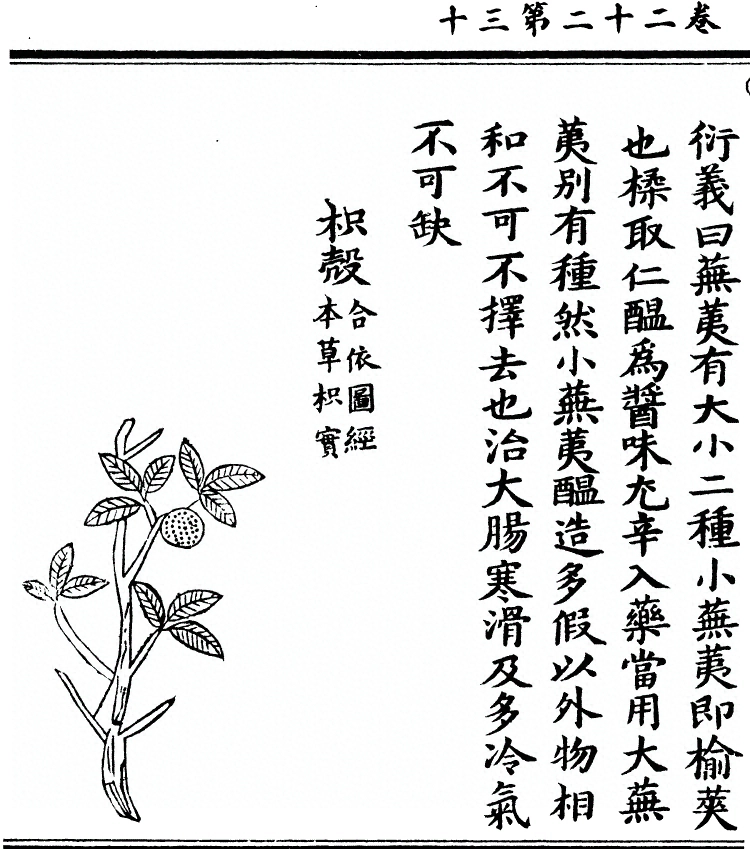 卷二十二第三十
衍義曰蕪荑有大小二種小蕪荑即榆莢
也㨹取仁醖爲醤味尤辛入藥當用大蕪
荑別有種然小蕪荑醖造多假以外物相
和不可不擇去也治大腸寒滑及多冷氣
不可缺
枳殼合依圖經
本草枳實